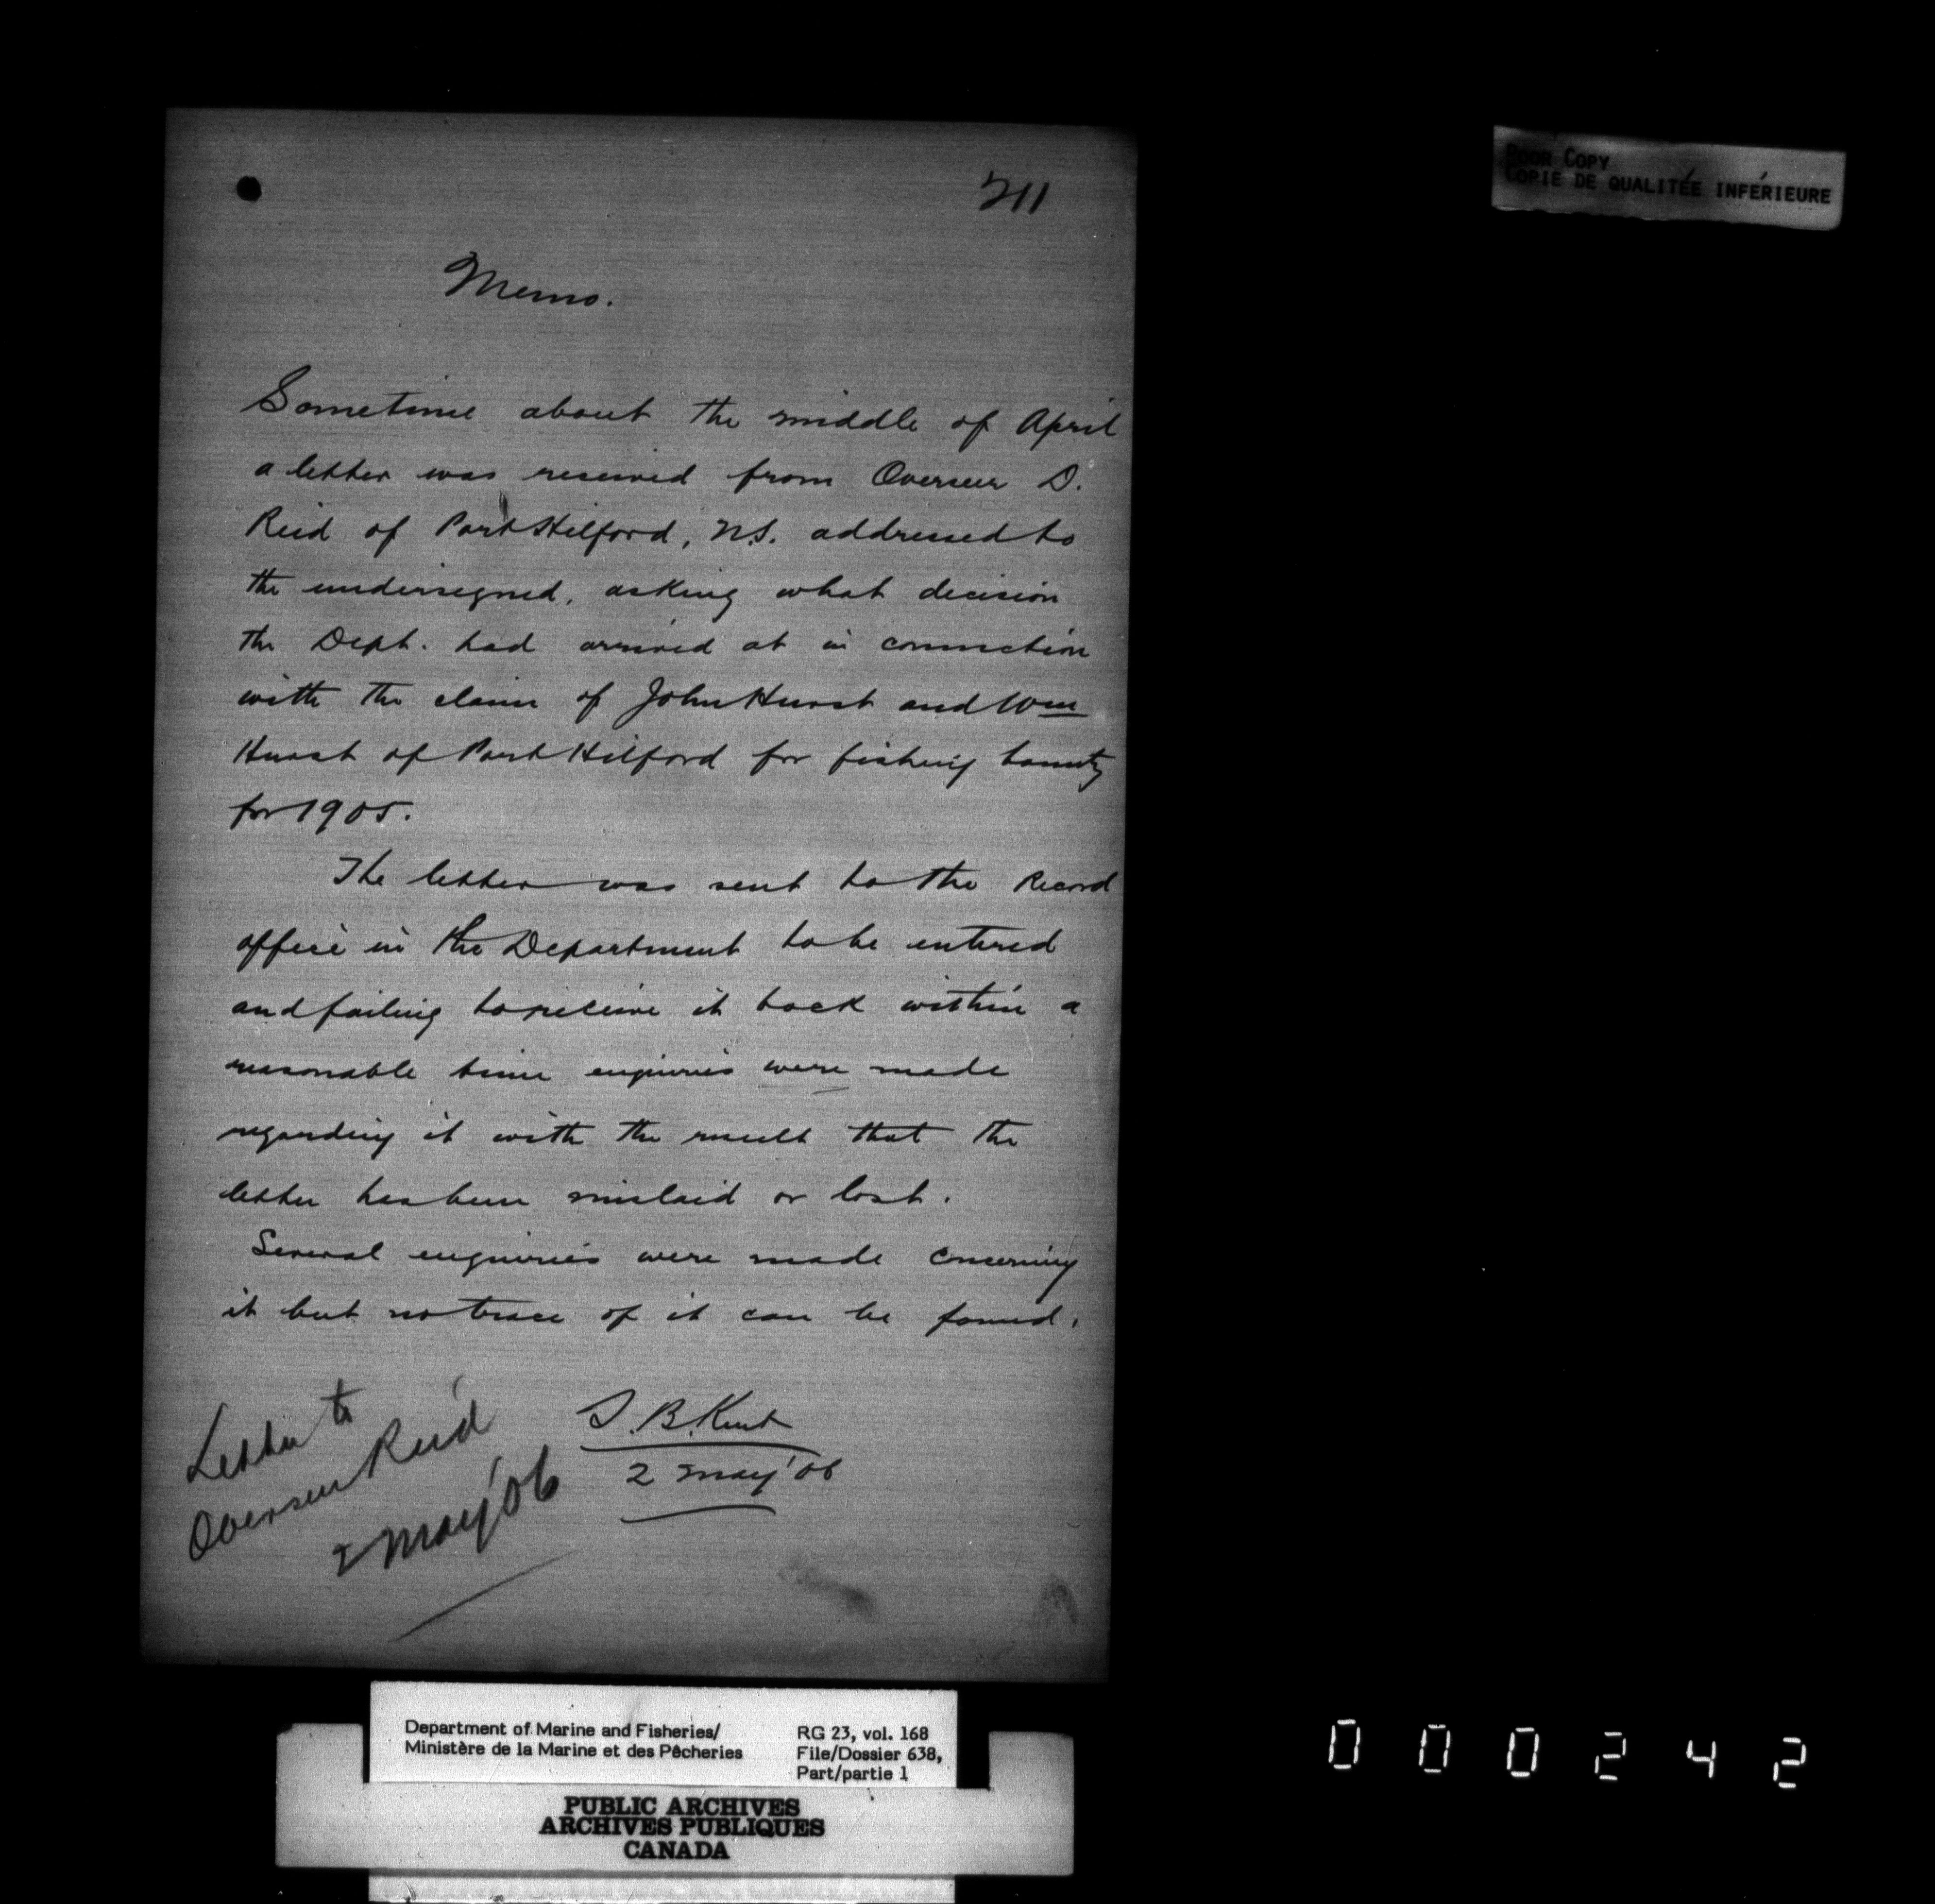 211
POOR COPY
COPIE DE QUALITÉE INFÉRIEURE
Memo.
Sometime about the middle of April
a letter was received from Overseer D.
Reid of Port Hilford, N.S. addressed to
the undersigned, asking what decision
the Dept. had arrived at in connection
with the claim of John Hurst and Wm
Hurst of Port Hilford for fishing bounty
for 1905.
The letter was sent to the Record
office in the Department to be entered
and failing to receive it back within a
reasonable time enquiries were made
regarding it with the result that the
letter has been mislaid or lost.
Several enquiries were made concerning
it but no trace of it can be found.
Letter to
Overseer Reid
2 May '06
J. B. Kent
2 May '06
Department of Marine and Fisheries/
Ministère de la Marine et des Pêcheries
RG 23, vol. 168
File/Dossier 638,
Part/partie 1
PUBLIC ARCHIVES
ARCHIVES PUBLIQUES
CANADA
000242